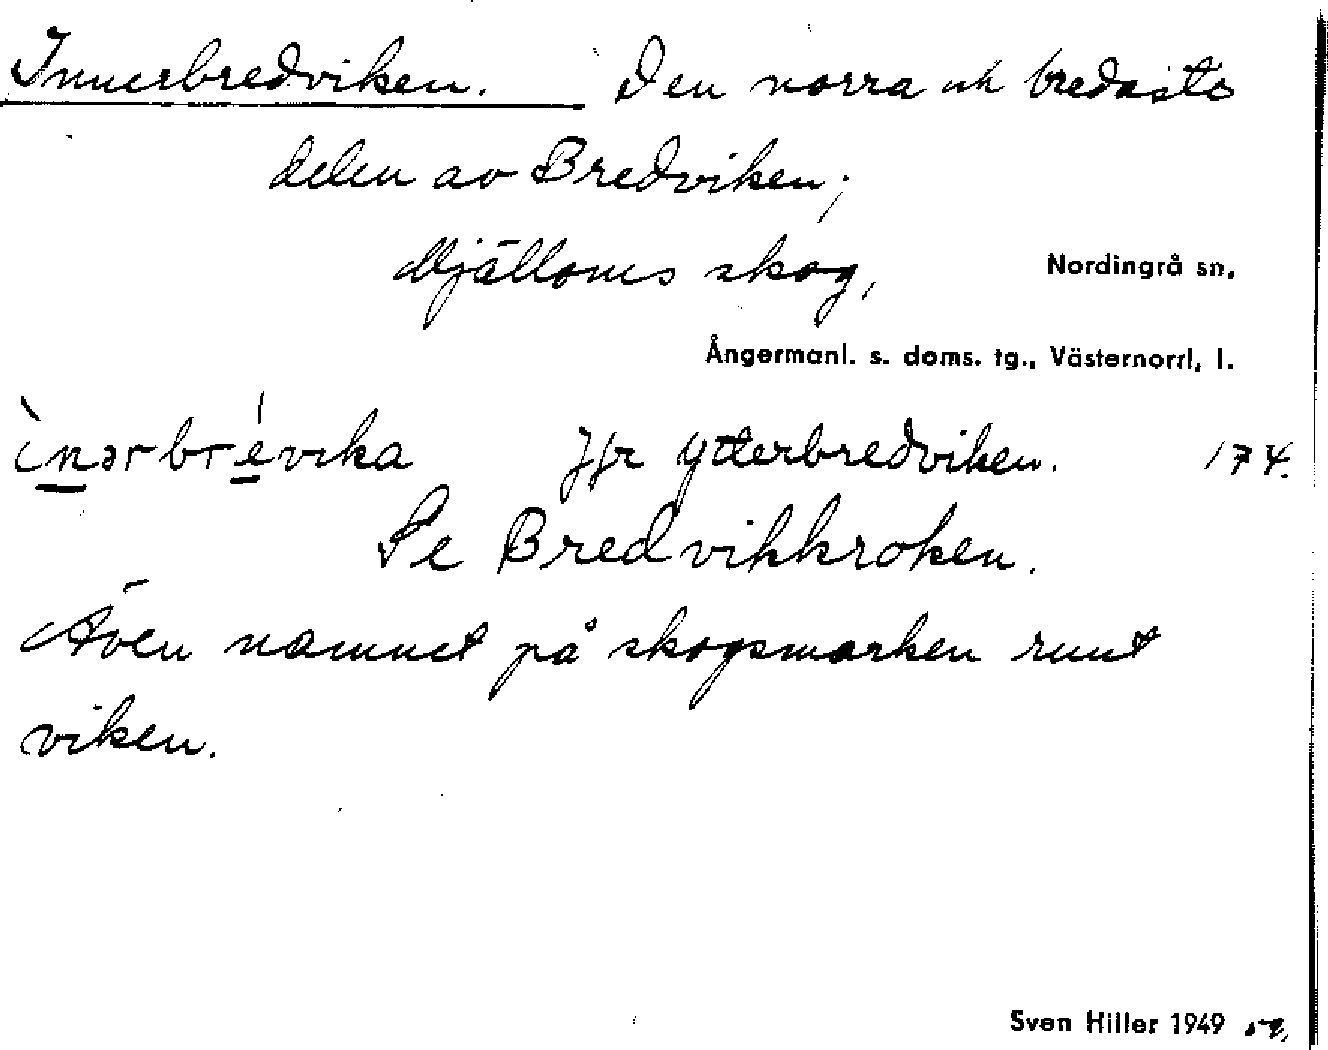 Innerbredviken. Den norra och bredaste
delen av Bredviken;
Mjälloms skog, Nordingrå sn.
Ångermanl. s. doms. tg., Västernorrl. l.
ìnərbrévika Jfr Ytterbredviken. 174.
Se Bredvikkroken.
Även namnet på skogsmarken runt
viken.
Sven Hiller 1949